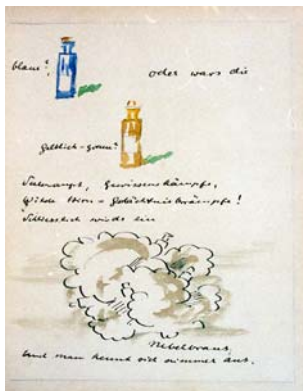 blaue?, oder wars die
gelblich-graue?
Gewissenskämpfe,
Wilde Hirn- Gedächtniskrämpfe!
Schliesslich wirds ein
Nebelbraus,
Und man kennt sich nimmer aus.